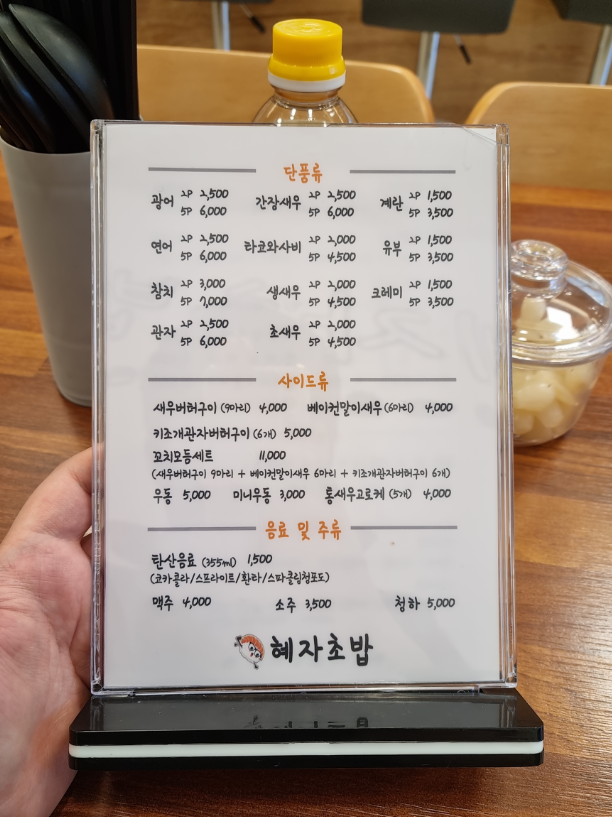 단품류
광어 2P 2,500 간장새우 2P 2,500 계란 2P 1,500
5P 6,000 5P 6,000 5P 3,500
연어 2P 2,500 타코와사비 2P 2,000 유부 2P 1,500
5P 6,000 5P 4,500 5P 3,500
참치 2P 3,000 생새우 2P 2,000 크레미 2P 1,500
5P 7,000 5P 4,500 5P 3,500
관자 2P 2,500 초새우 2P 2,000
5P 6,000 5P 4,500
사이드류
새우버터구이 (9마리) 4,000 베이컨말이새우 (6마리) 4,000
키조개관자버터구이 (6개) 5,000
꼬치모듬세트 11,000
(새우버터구이 9마리 + 베이컨말이새우 6마리 + 키조개관자버터구이 6개)
우동 5,000 미니우동 3,000 통새우고로케 (5개) 4,000
음료 및 주류
탄산음료 (355ml) 1,500
(코카콜라/스프라이트/환타/스파클링청포도)
맥주 4,000 소주 3,500 청하 5,000
혜자초밥